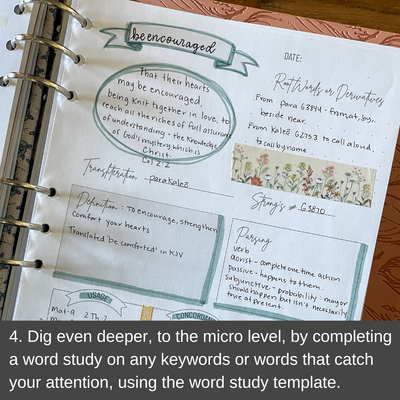 be encouraged
DATE:
That their hearts
may be encouraged,
being knit together in love, to
reach all the riches of full assurance
of understanding + the Knowledge
of God's mystery, which is
Christ.
Col 2:2
Root Words or Derivatives
From para G3844 - from at, by,
beside near.
From Kaleō G2753 to call aloud,
to call by name
Transliteration - parakaleō
Strong's # G3870
Definition: To encourage, strengthen
Comfort your hearts
Translated 'be comforted' in KJV
Parsing
verb
aorist - complete one time action
passive - happens to them.
subjunctive - probability. may or
should happen but isn't necessarily
true at present.
USAGE
CONCORDAN
Mat-9
2 Th
4. Dig even deeper, to the micro level, by completing
a word study on any keywords or words that catch
your attention, using the word study template.